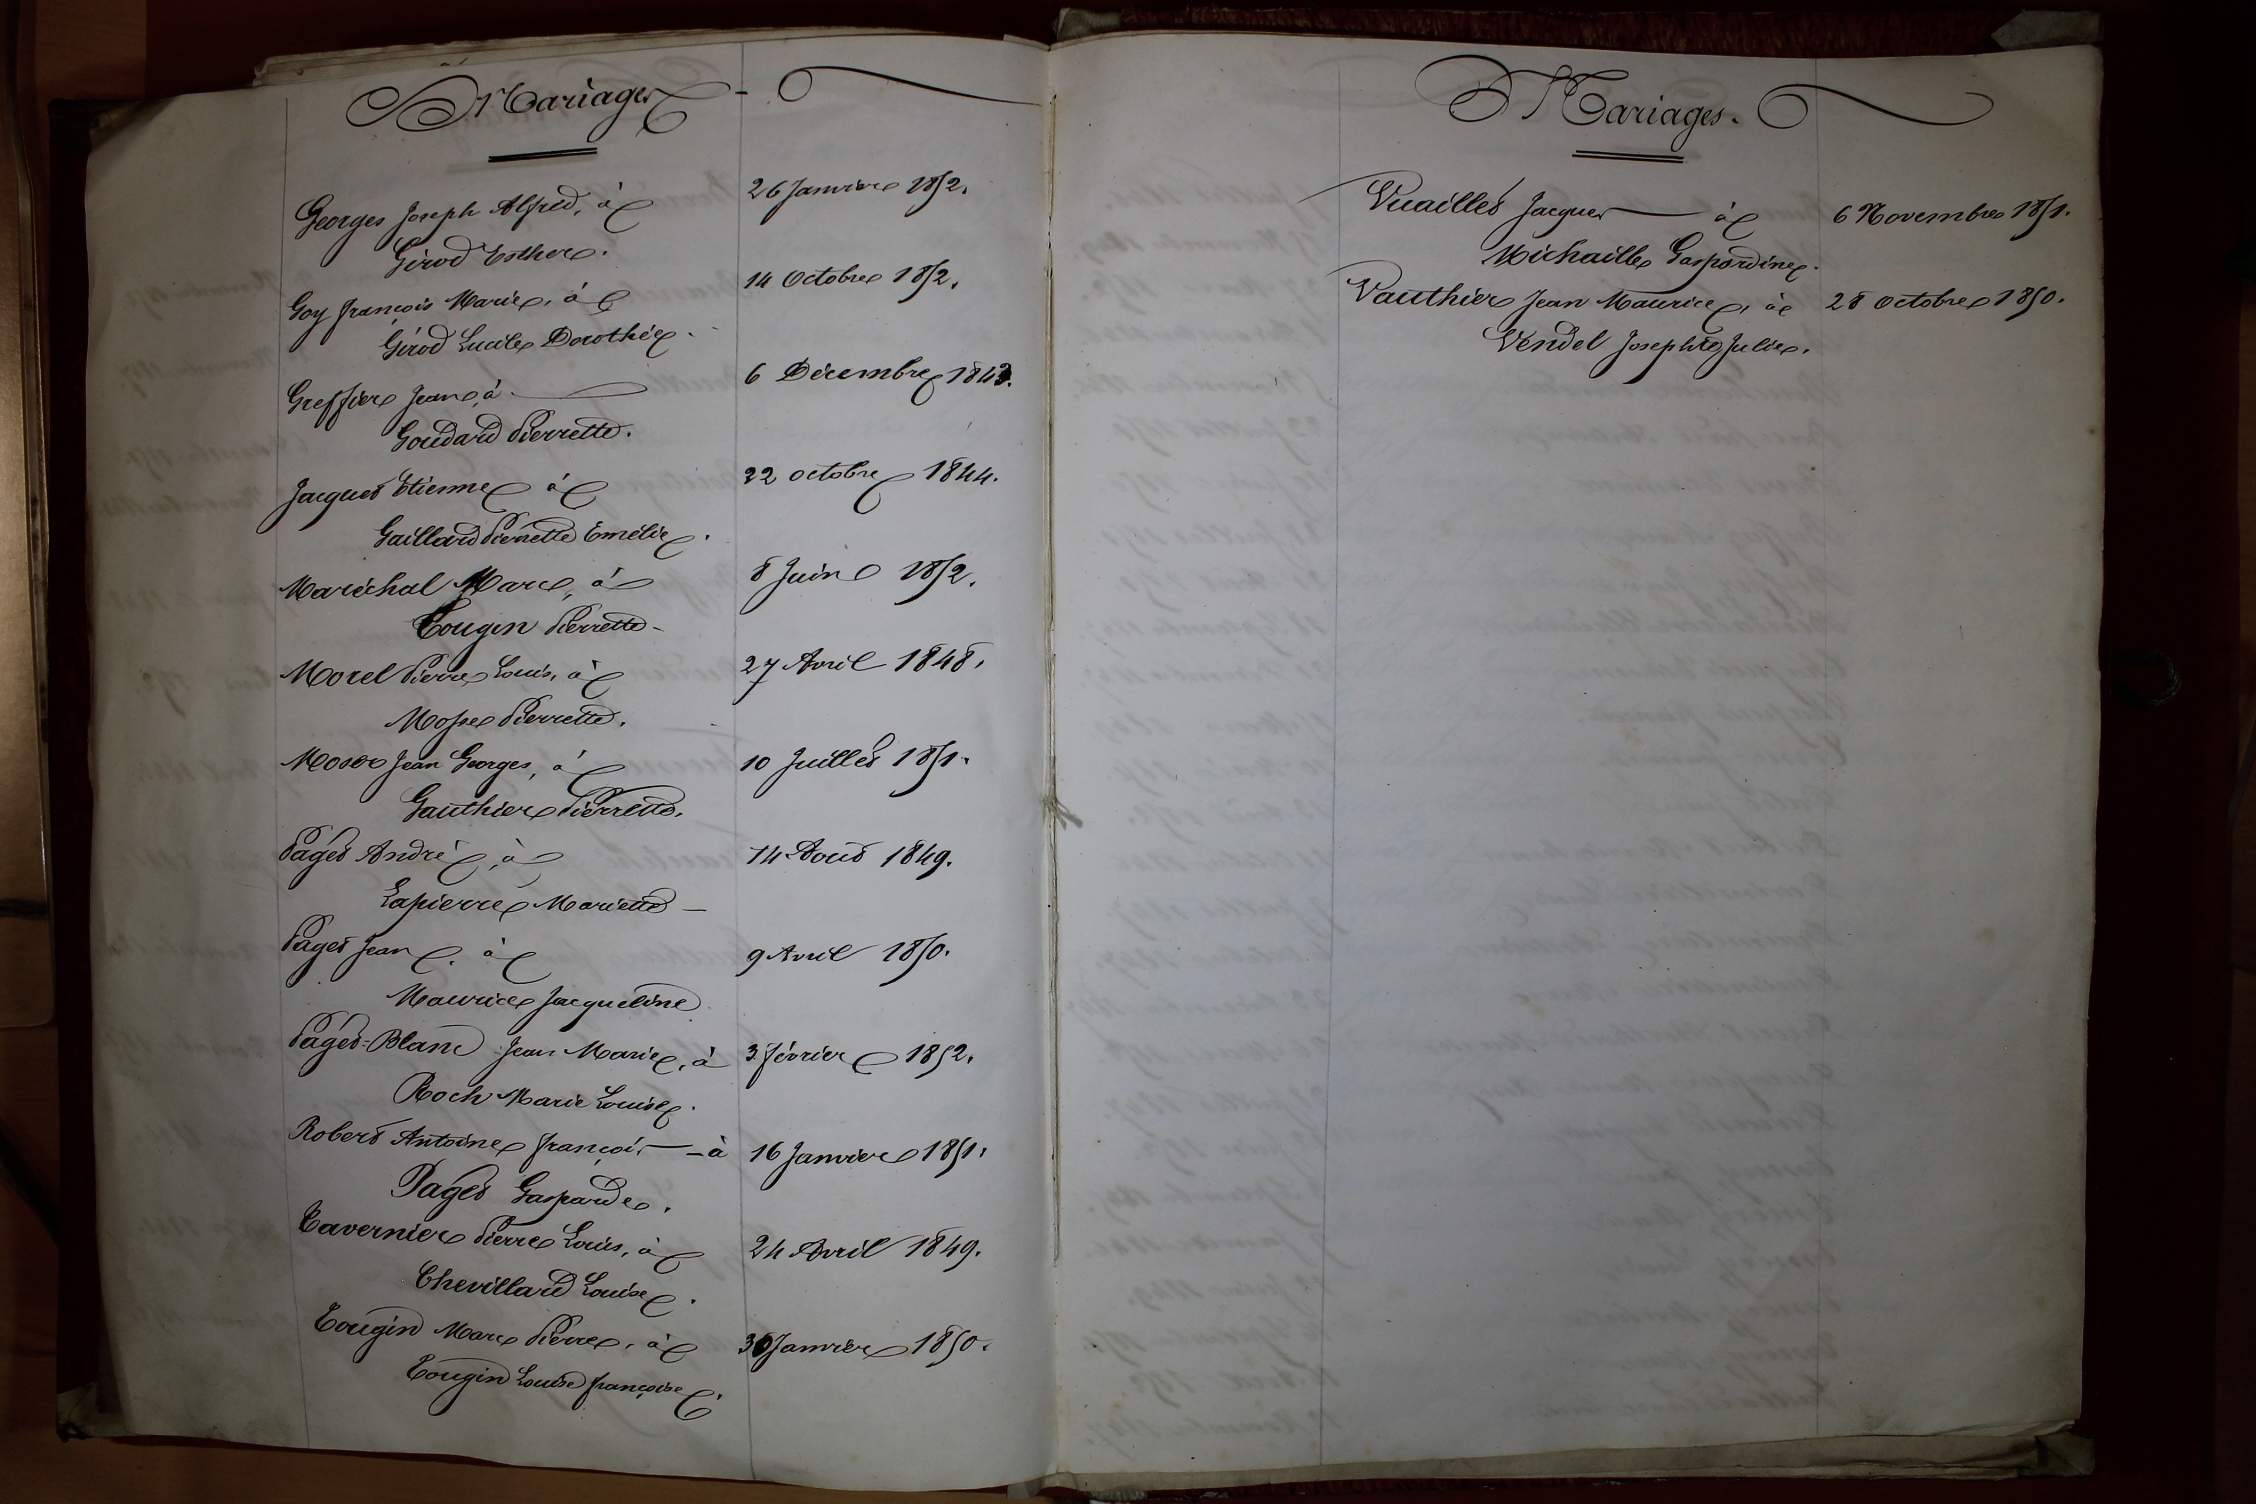 Mariages
Georges Joseph Alfred, à 26 Janvier 1852.
Girod Esther.
Goy françois Marie, à 14 Octobre 1852.
Girod Lucile Dorothée.
Greffier Jean, à 6 Décembre 1843.
Goudard Pierrette.
Jacquet Etienne à 22 octobre 1844.
Gaillard Pierrette Emélie.
Maréchal Marc, à 8 Juin 1852.
Tougin Pierrette
Morel Pierre Louis, à 27 Avril 1848.
Mosse Pierrette.
Moser Jean Georges, à 10 Juillet 1851.
Gauthier Pierrette.
Paget André, à 14 Août 1849.
Lapierre Mariette
Paget Jean, à 9 Avril 1850.
Maurice Jacqueline
Paget=Blanc Jean Marie, à 3 février 1852.
Roch Marie Louise.
Robert Antoine françois à 16 Janvier 1851.
Paget Gasparde.
Tavernier Pierre Louis, à 24 Avril 1849.
Chevillard Louise.
Tougin Marc Pierre, à 30 Janvier 1850.
Tougin Louise françoise.
Mariages.
Vuaillet Jacques à 6 Novembre 1851.
Michaille Gaspardine.
Vauthier Jean Maurice, à 28 octobre 1850.
Vendel Josephte Julie.